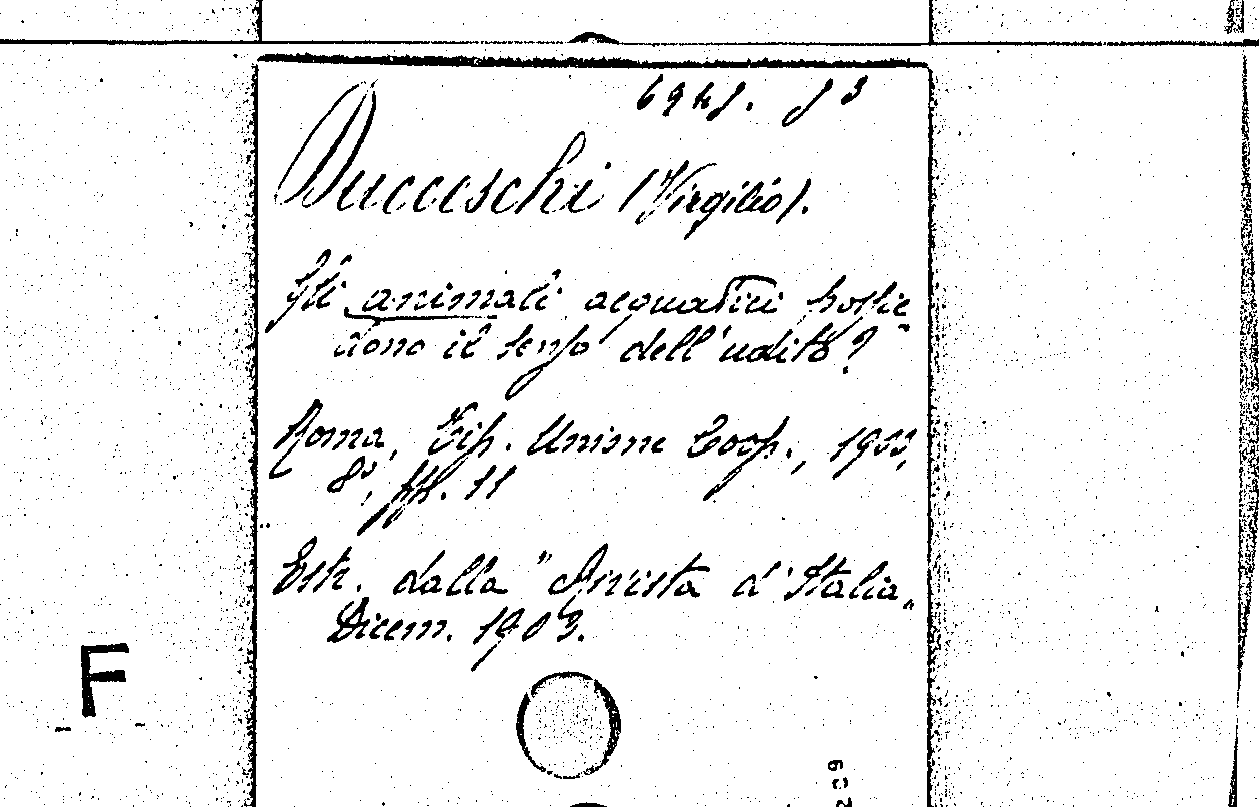 Ducceschi (Virgilio).
Gli animali acquatici possie-
dono il senso dell'udito?
Roma, Tip. Unione Coop., 1903,
8°, pp. 11
Estr. dalla "Rivista d'Italia„
Dicem. 1903.
F